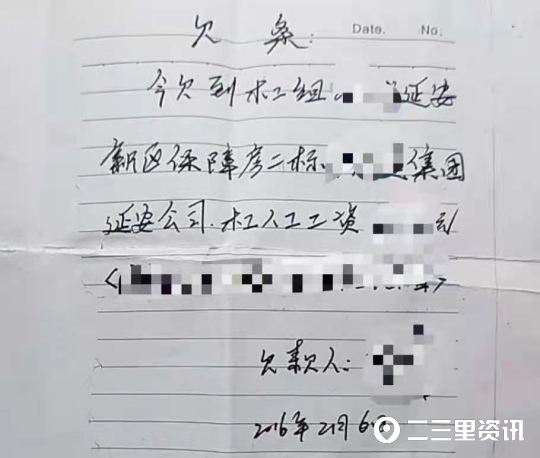 欠条:
Date. No.
今欠到木工组 延安
新区保障房二标 集团
延安公司.木工人工工资
欠款人:
2016年2月6日
二三里资讯